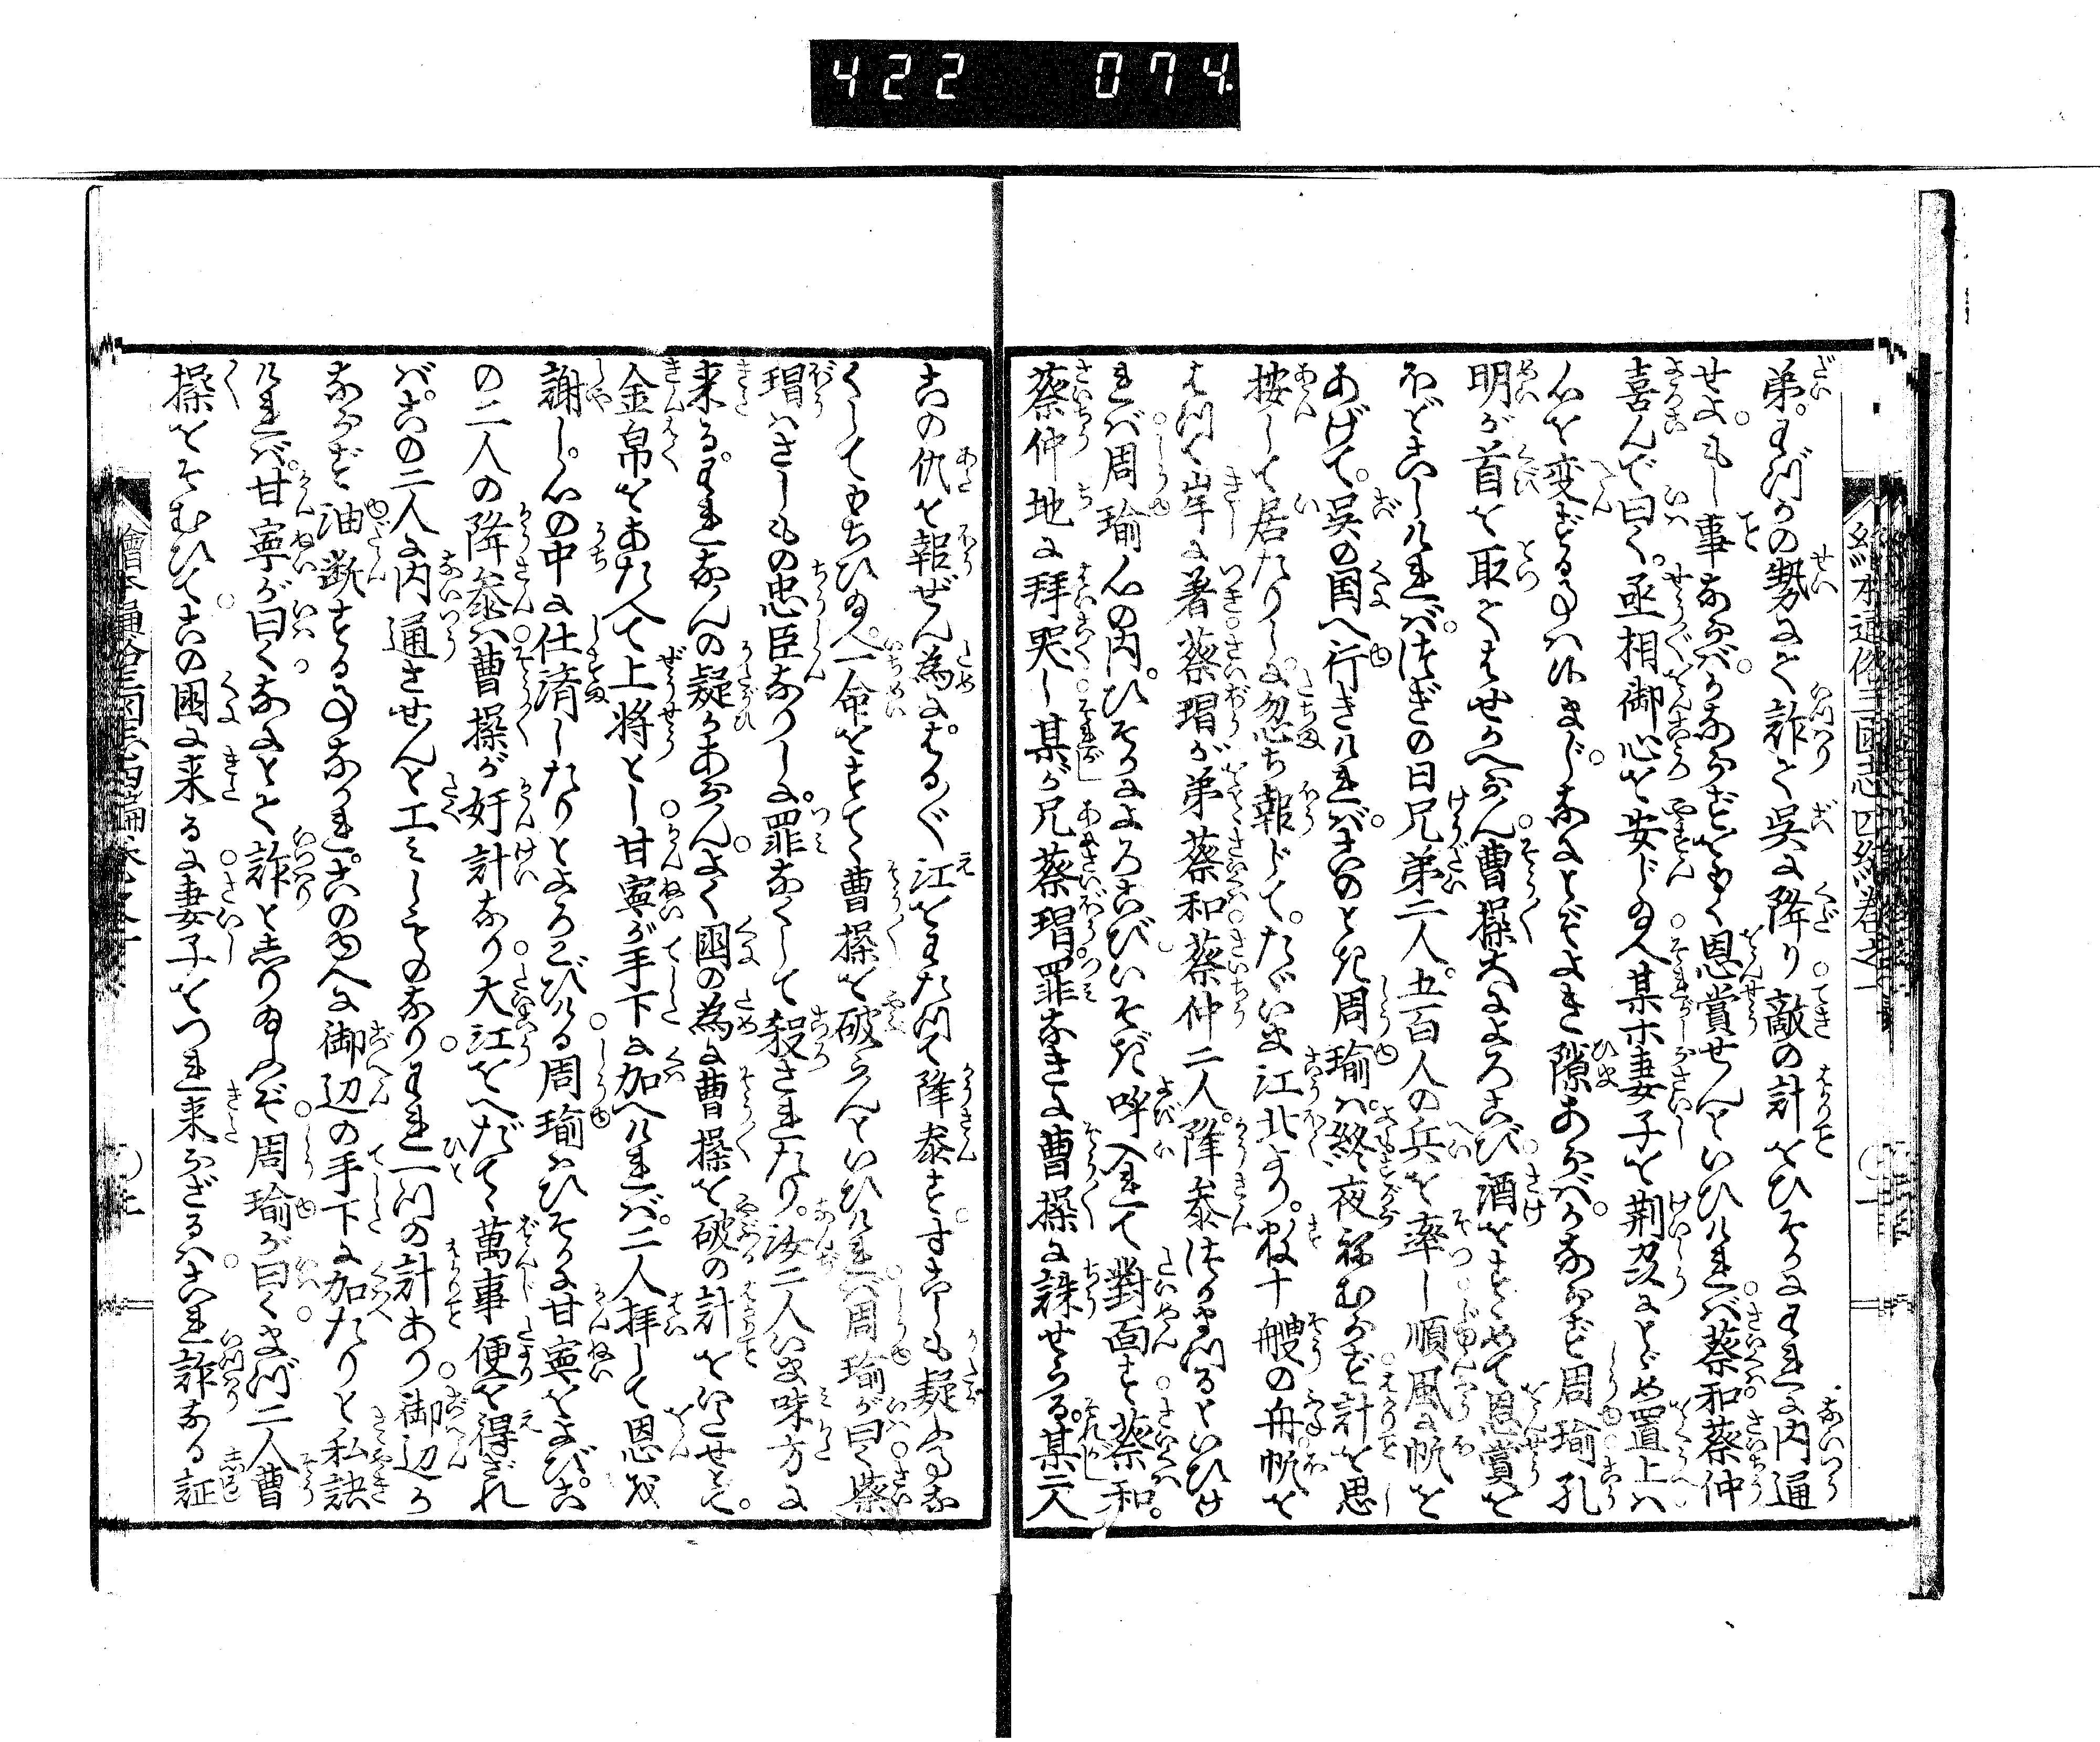 422 074.
弟。わづかの勢にて詐て呉に降り敵の計をひそかにわれに内通
せよ。もし事ならばかならず重く恩賞せんといひければ蔡和蔡仲
喜んで曰く。丞相御心を安じ給へ某ホ妻子を荊州にとゞめ置上は
心を変ずる事は候まじ。なにとぞよき隙あらば。かならず周瑜孔
明が首を取てまいらせん曹操大によろこび酒をすゝめて恩賞を
ほどこしければ。次ぎの日兄弟二人。五百人の兵を率し順風に帆を
あげて。呉の国へ行きければ。このとき周瑜は。終夜ねむらず計を思
按して居たりしに。忽ち報じて。たゞいま江北より。数十艘の舟帆を
まつて岸に著蔡瑁が弟蔡和蔡仲二人。降参つかまつるといひけ
れば周瑜心の内。ひそかによろこびいそぎ呼入れて対面す蔡和。
蔡仲地に拜哭し某が兄蔡瑁。罪なきに曹操に誅せらる。某二人
この仇を報ぜん為に。はるばる江をわたつて降参す。すこしも疑ふ事な
くしてもちひ給へ。一命をすてゝ曹操を破らんといひければ周瑜が曰く蔡
瑁はさしもの忠臣なりしに。罪なくして殺されたり。汝二人いま味方に
来る。われなんの疑かあらん。よく国の為に曹操を破の計をいたせとて。
金帛をあたへて上将とし甘寧が手下に加へければ。二人拜して恩を
謝し。心の中に仕済したりとよろこびける周瑜はひそかに甘寧をよび。こ
の二人の降参は曹操が奸計なり大江をへだてゝ萬事便を得ざれ
ば。この二人に内通させんと工みしものなりわれ一つの計あり御辺か
ならず油断する事なかれ。このゆへに御辺の手下に加たりと私語
ければ。甘寧が曰くなにとて詐としり給ふぞ周瑜が曰くまづ二人曹
操をそむひて。この国に来るに妻子をつれ来らざるはこれ詐なる証
繪本通俗三国志四編巻之一